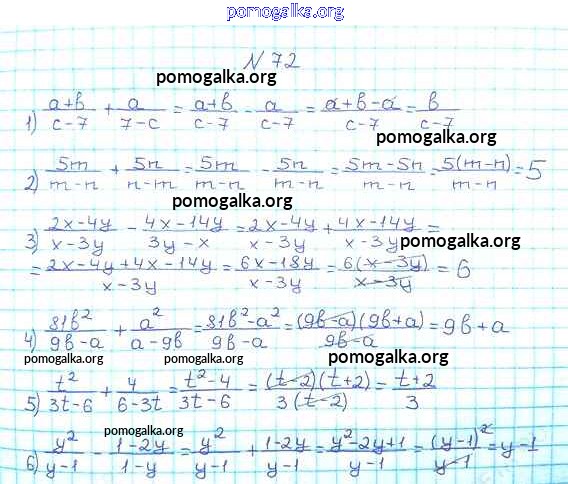 pomogalka.org
N 72
pomogalka.org
1) (a+b)/(c-7) + a/(7-c) = (a+b)/(c-7) - a/(c-7) = (a+b-a)/(c-7) = b/(c-7)
pomogalka.org
2) 5m/(m-n) + 5n/(n-m) = 5m/(m-n) - 5n/(m-n) = (5m-5n)/(m-n) = 5(m-n)/(m-n) = 5
pomogalka.org
3) (2x-4y)/(x-3y) - (4x-14y)/(3y-x) = (2x-4y)/(x-3y) + (4x-14y)/(x-3y) =
pomogalka.org
= (2x-4y+4x-14y)/(x-3y) = (6x-18y)/(x-3y) = 6(x-3y)/(x-3y) = 6
4) 81b²/(9b-a) + a²/(a-9b) = (81b²-a²)/(9b-a) = (9b-a)(9b+a)/(9b-a) = 9b+a
pomogalka.org pomogalka.org pomogalka.org
5) t²/(3t-6) + 4/(6-3t) = (t²-4)/(3t-6) = (t-2)(t+2)/3(t-2) = (t+2)/3
pomogalka.org
6) y²/(y-1) - (1-2y)/(1-y) = y²/(y-1) + (1-2y)/(y-1) = (y²-2y+1)/(y-1) = (y-1)²/(y-1) = y-1
pomogalka.org